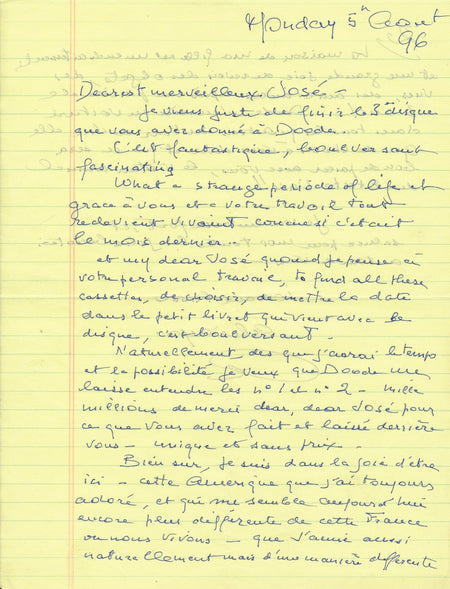 Monday 5 Aout
96
Dearest merveilleux José -
Je viens juste de finir le 3e disque
que vous avez donné à Doode.
C'est fantastique, boulversant
fascinating
What a strange periode of life et
grace à vous et a votre travail tout
redevient vivant comme si c'était
le mois dernier..
et my dear José quand je pense à
votre personal travail, to find all these
cassettes, de choisir, de mettre la date
dans le petit livret qui vient avec le
disque, c'est boulversant -
Naturellement des que j'aurai le temps
et la possibilité je veux que Doode me
laisse entendre les n° 1 et n° 2 - mille
millions de merci dear, dear José pour
ce que vous avez fait et laissé derrière
vous - unique et sans prix -
Bien sur, je suis dans la joie d'être
ici - cette Amerique que j'ai toujours
adoré, et qui me semble aujourd'hui
encore plus differente de cette France
ou nous vivons - que j'aime aussi
naturellement mais d'une manière differente